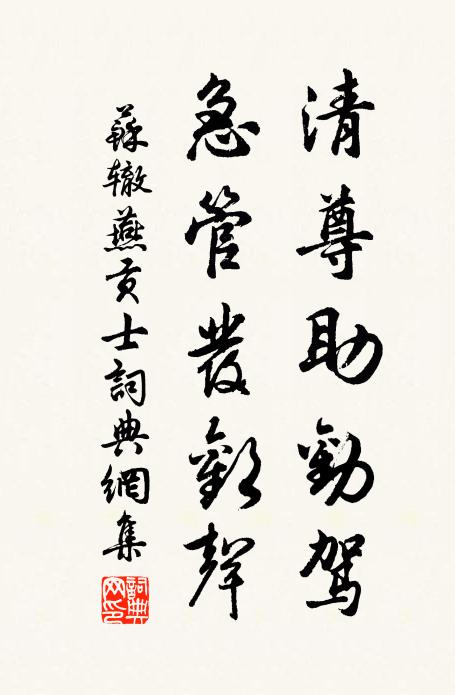 清尊助勸駕
急管發歡聲
蘇轍燕貢士詞典網集
詞典网印